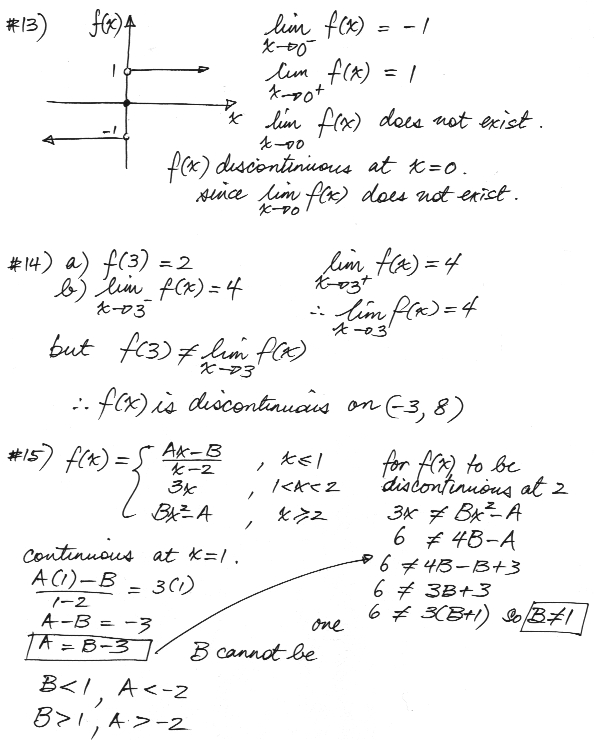 #13) f(x) lim f(x) = -1
x→0⁻
1 lim f(x) = 1
x→0⁺
x lim f(x) does not exist.
-1 x→0
f(x) discontinuous at x=0.
since lim f(x) does not exist.
x→0
#14) a) f(3) = 2 lim f(x) = 4
x→3⁺
b) lim f(x) = 4 ∴ lim f(x) = 4
x→3⁻ x→3
but f(3) ≠ lim f(x)
x→3
∴ f(x) is discontinuous on (-3, 8)
#15) f(x) = { (Ax-B)/(x-2) , x≤1
3x , 1<x<2
Bx²-A , x≥2
for f(x) to be
discontinuous at 2
3x ≠ Bx²-A
6 ≠ 4B-A
6 ≠ 4B-B+3
6 ≠ 3B+3
6 ≠ 3(B+1) so B≠1
continuous at x=1.
(A(1)-B)/(1-2) = 3(1)
A-B = -3
A = B-3
B cannot be one
B<1, A<-2
B>1, A>-2